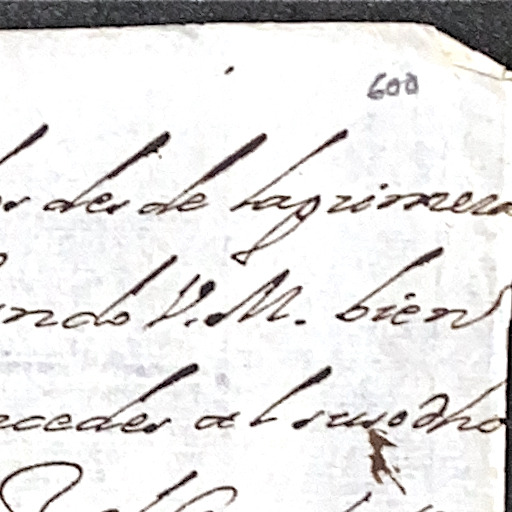 600
des de la primera
ndo V. M. bien
ceder al susodho